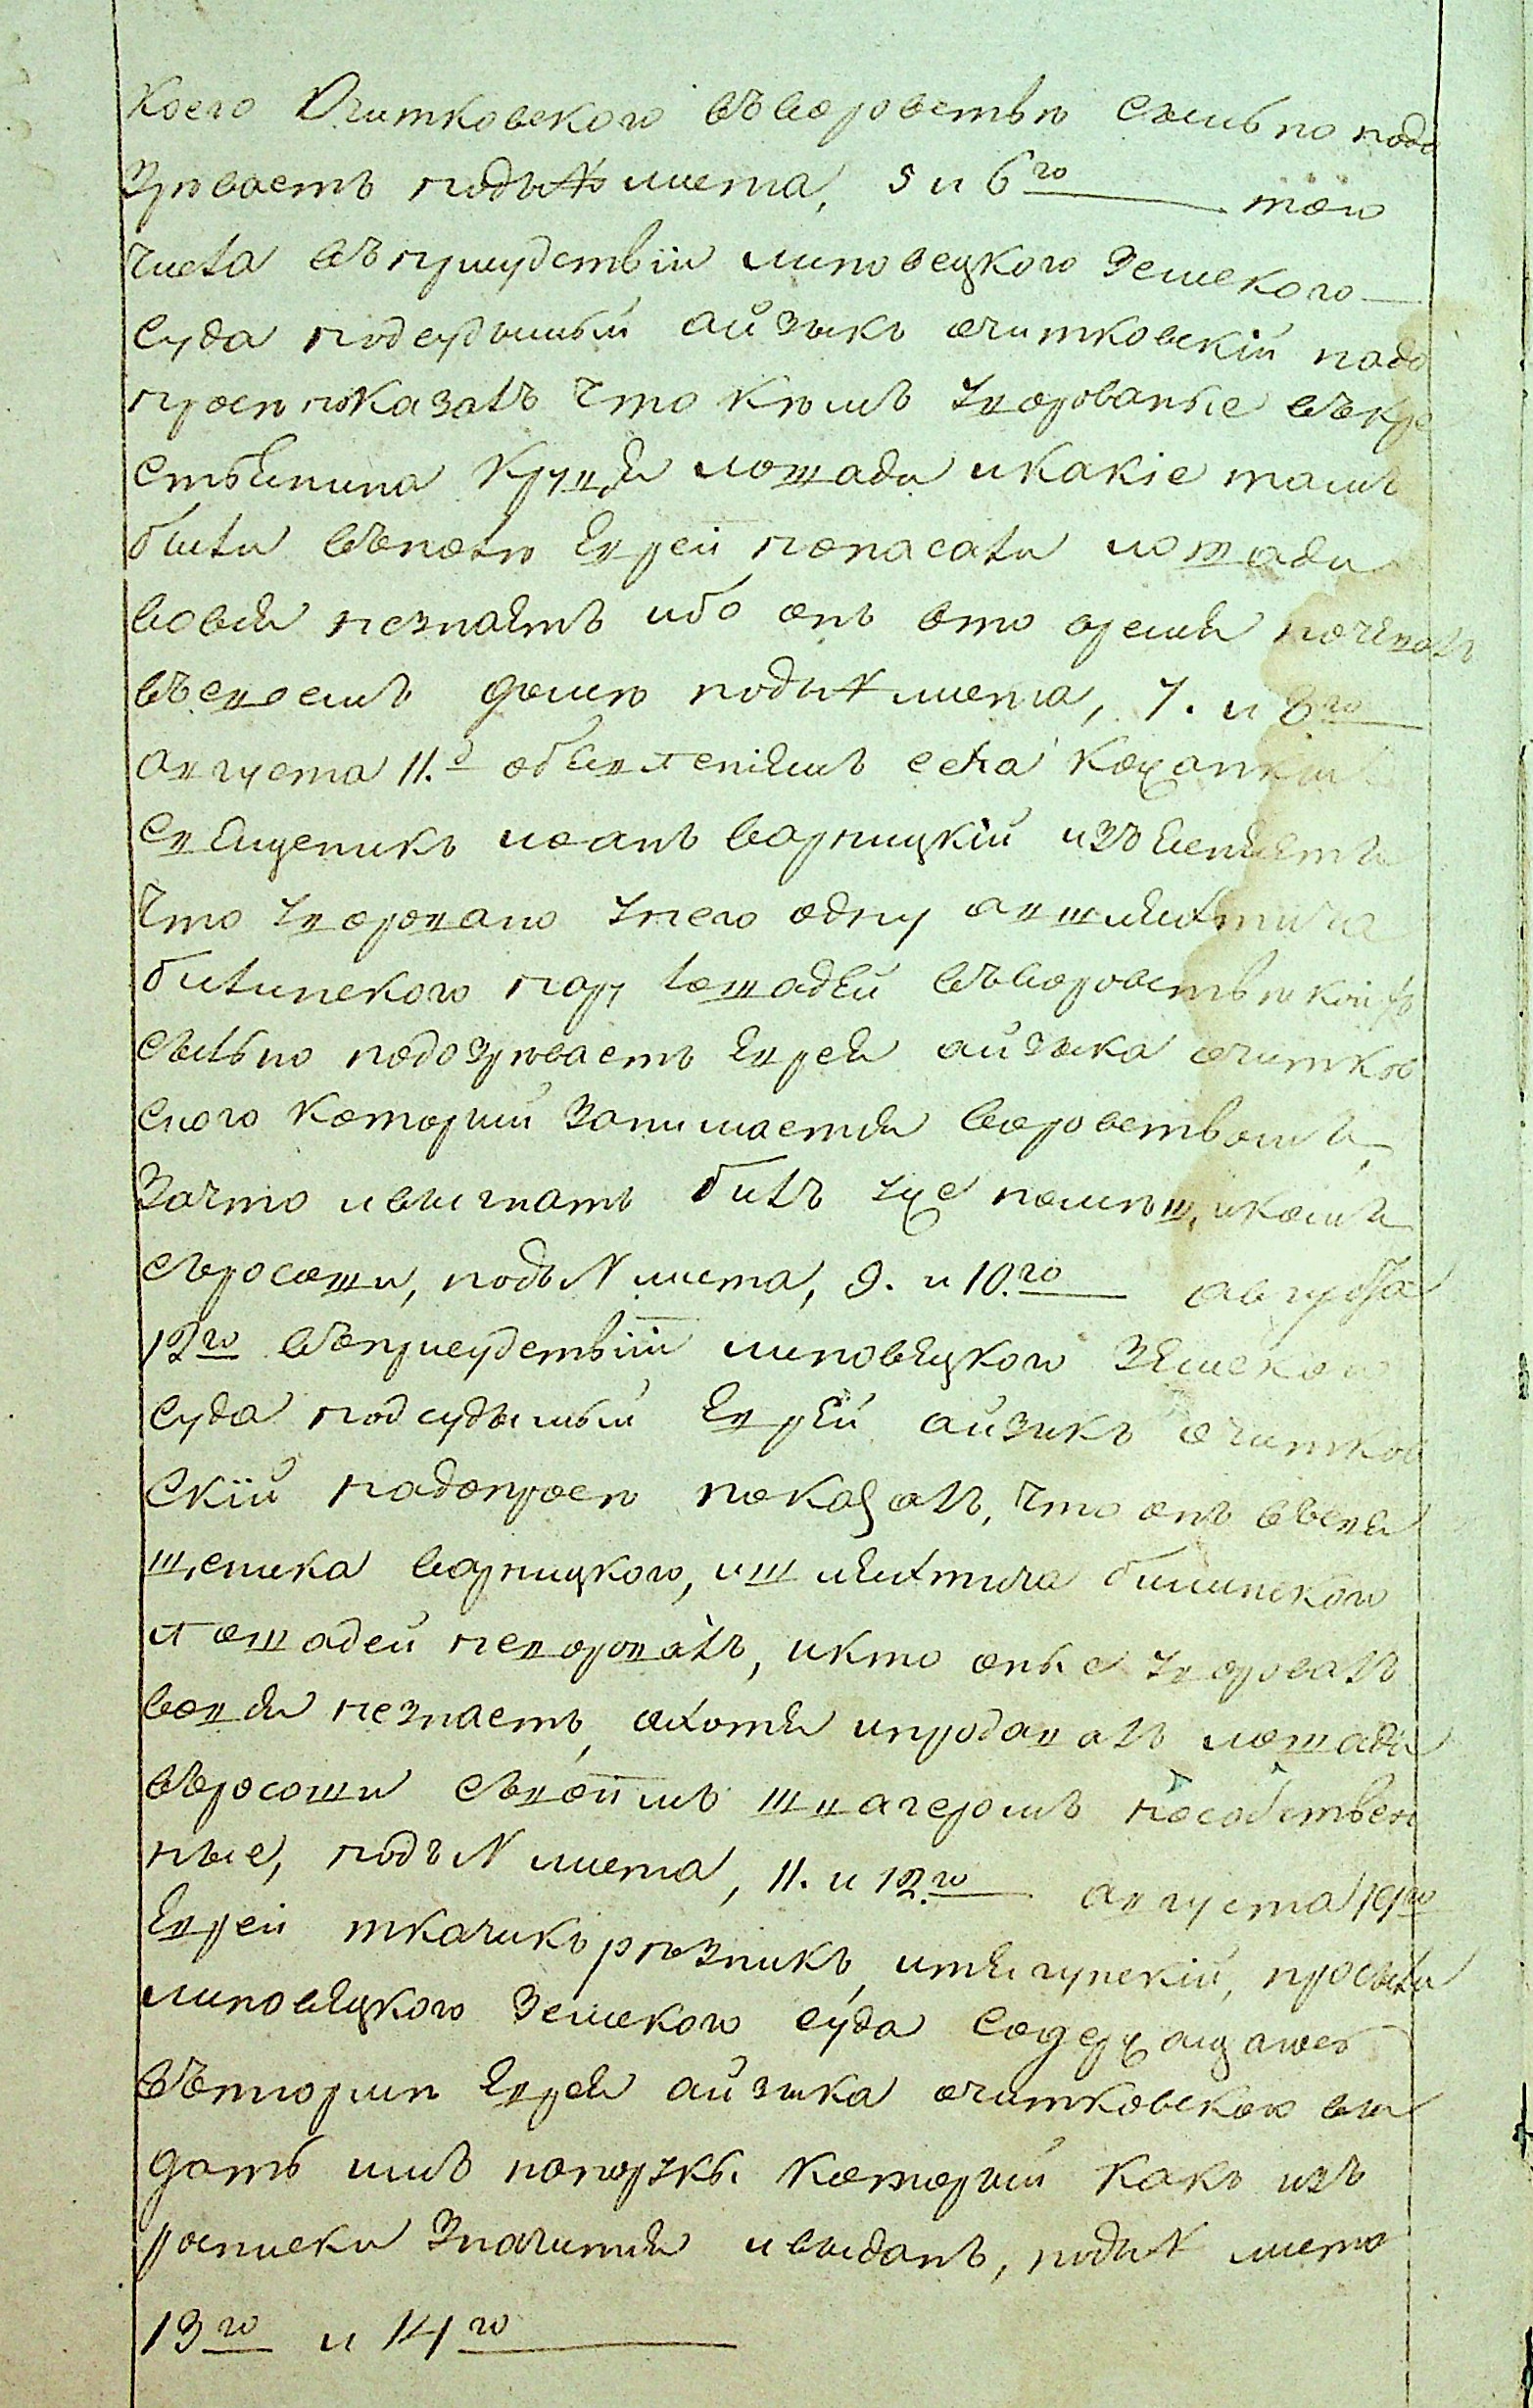 коего Очитковского въворовствѣ сильно подо
зрѣваетъ подъ№ листа, 5 и 6го тогⷪ
числа въприсудствїи липовецкого земского
суда подсудимый айзыкъ очитковскій на до
просѣ показалъ что кѣмъ уворованы въкре
стьянина лошади икакіе тамъ
были въполю Еврей непасалъ лошади
вовся незнаятъ ибо онъ вто время ночевалъ
въсвоемъ домѣ подъ№ листа, 7. и 8го
августа 11.го объявленіямъ села Кожанки
священикъ иоанъ варницкій изъясняетъ
что уворовано унего одну ашляхтича
билинского пару лошадей въворовствѣ коихъ
сильно подозрѣваетъ Еврея айзыка очитков
ского который занимаетця воровствомъ
зачто ивыгнатъ билъ уже помѣщикомъ
съросоши, подъ№ листа, 9. и 10.го августа
12го въприсудствїи липовяцкого Земского
суда подсудимый Еврей айзикъ очитков
скїй надопросѣ показалъ, что онъ въсвя
щеника варницкого, ишляхтича билинского
лошадей неворовалъ, икто оные уворовалъ
вовся незнаетъ, ахотя ипродавалъ лошади
въросоши съ своимъ швагеромъ нособствен
ные, подъ№ листа, 11. и 12.го августа 19го
Еврей ткачикъ рѣзникъ, итягунскій, просили
липовяцкого Земского суда содержащагося
вътюрми Еврея айзыка очитковского вы
дать имъ напоруки который какъ изъ
росписки значитця ивыданъ, подъ№ листа
13го и 14го